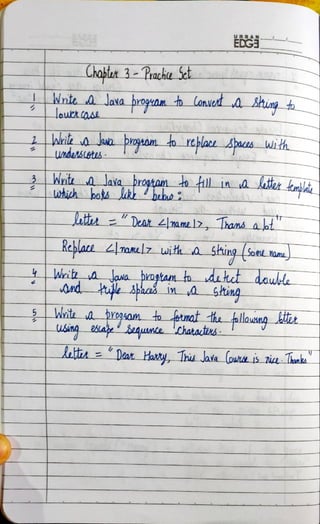 URBAN
EDGE
Chapter 3 - Practice Set
1 Write a Java program to Convert a String to
lower case
2 Write a Java program to replace spaces with
underscores.
3 Write a Java program to fill in a letter template
which looks like below :
letter = "Dear <|name|>, Thanks a lot"
Replace <|name|> with a String (some name)
4 Write a Java program to detect double
and triple spaces in a String
5 Write a program to format the following letter
using escape sequence characters.
letter = "Dear Harry, This Java Course is nice. Thanks"